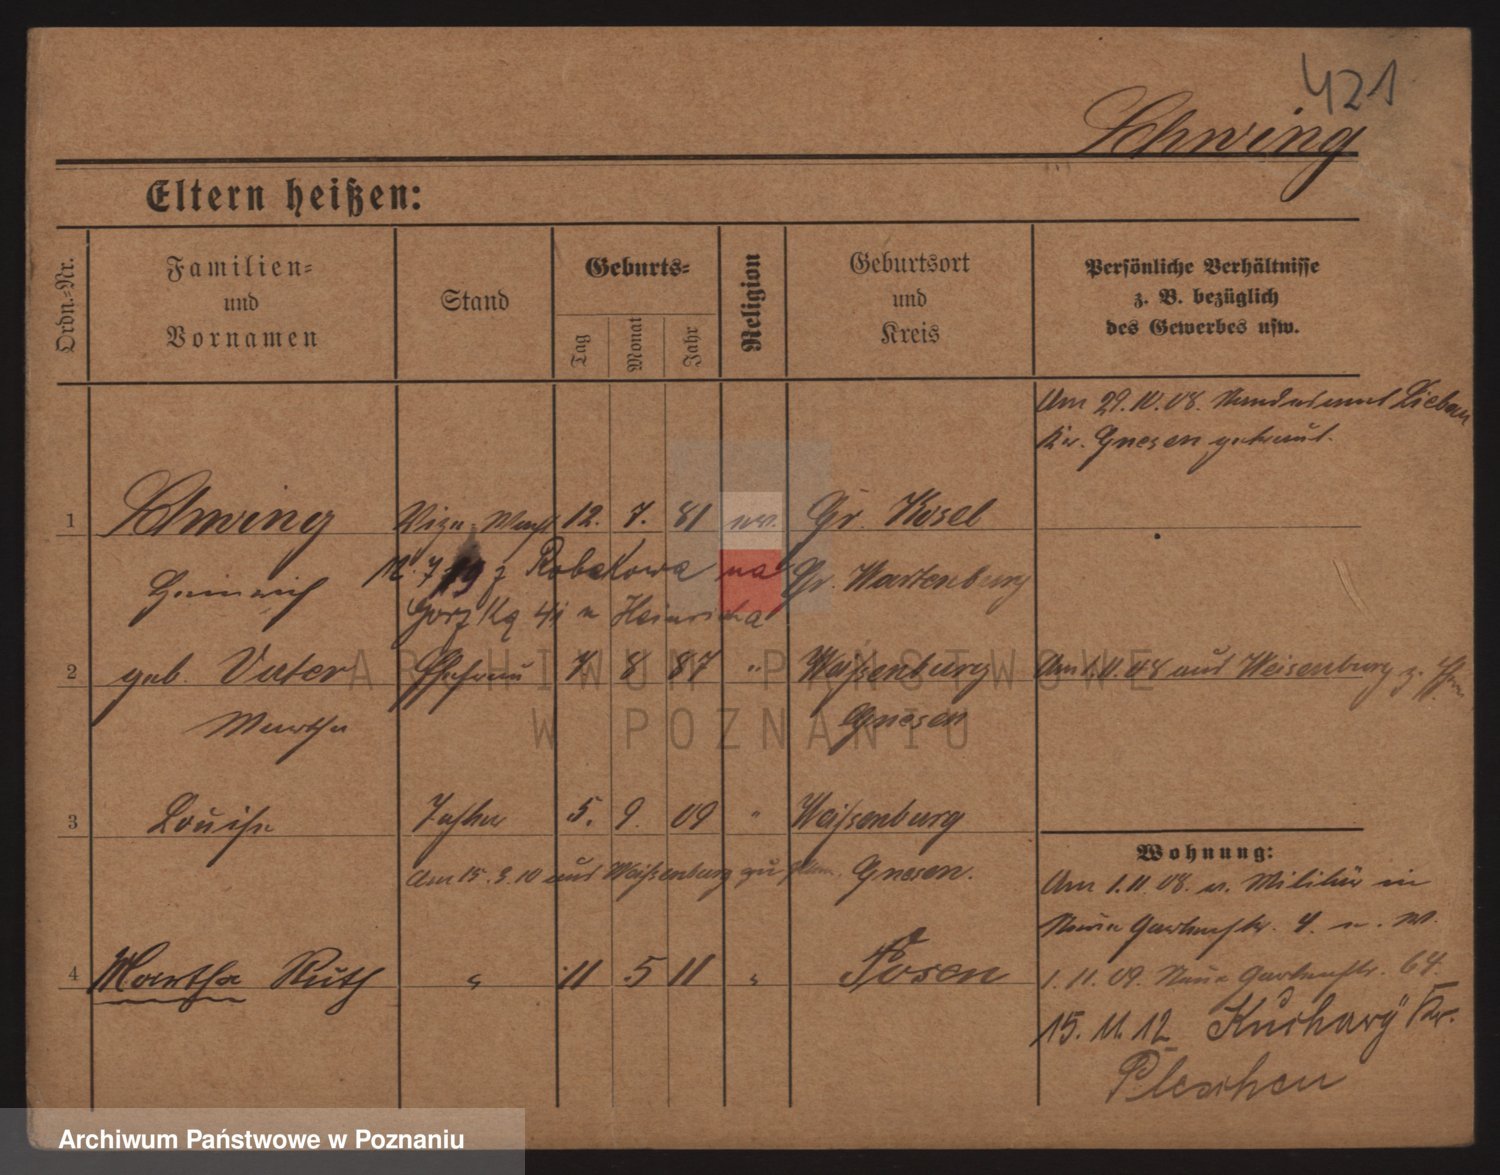 421
Schwing
Eltern heißen:
Ordn.=Nr.
Familien=
und
Vornamen
Stand
Geburts=
Tag
Monat
Jahr
Religion
Geburtsort
und
Kreis
Persönliche Verhältnisse
z. B. bezüglich
des Gewerbes usw.
Am 29.10.08. Standesamt Liebau
Kr. Gnesen getraut.
1 Schwing 12. 7. 81 ev. Gr. Kosel
Heinrich z Robakowa na Gr. Wartenburg
41 u Heinricha
2 geb. Vater Ehefrau 7 8 87 " Weißenburg Am 1.11.08 aus Weisenburg z.
Martha Gnesen
3 Louise Tochter 5. 9. 09 " Weißenburg
Am 15.3.10 aus Weißenburg zu Gnesen.
Wohnung:
Am 1.11.08. v. Militär in
Neue Gartenstr. 4.
4 Martha Ruth " 11 5 11 " Posen
1.11.09. Neue Gartenstr. 64.
15.11.12 Kuchary Kr.
Pleschen
ARCHIWUM PAŃSTWOWE
W POZNANIU
Archiwum Państwowe w Poznaniu